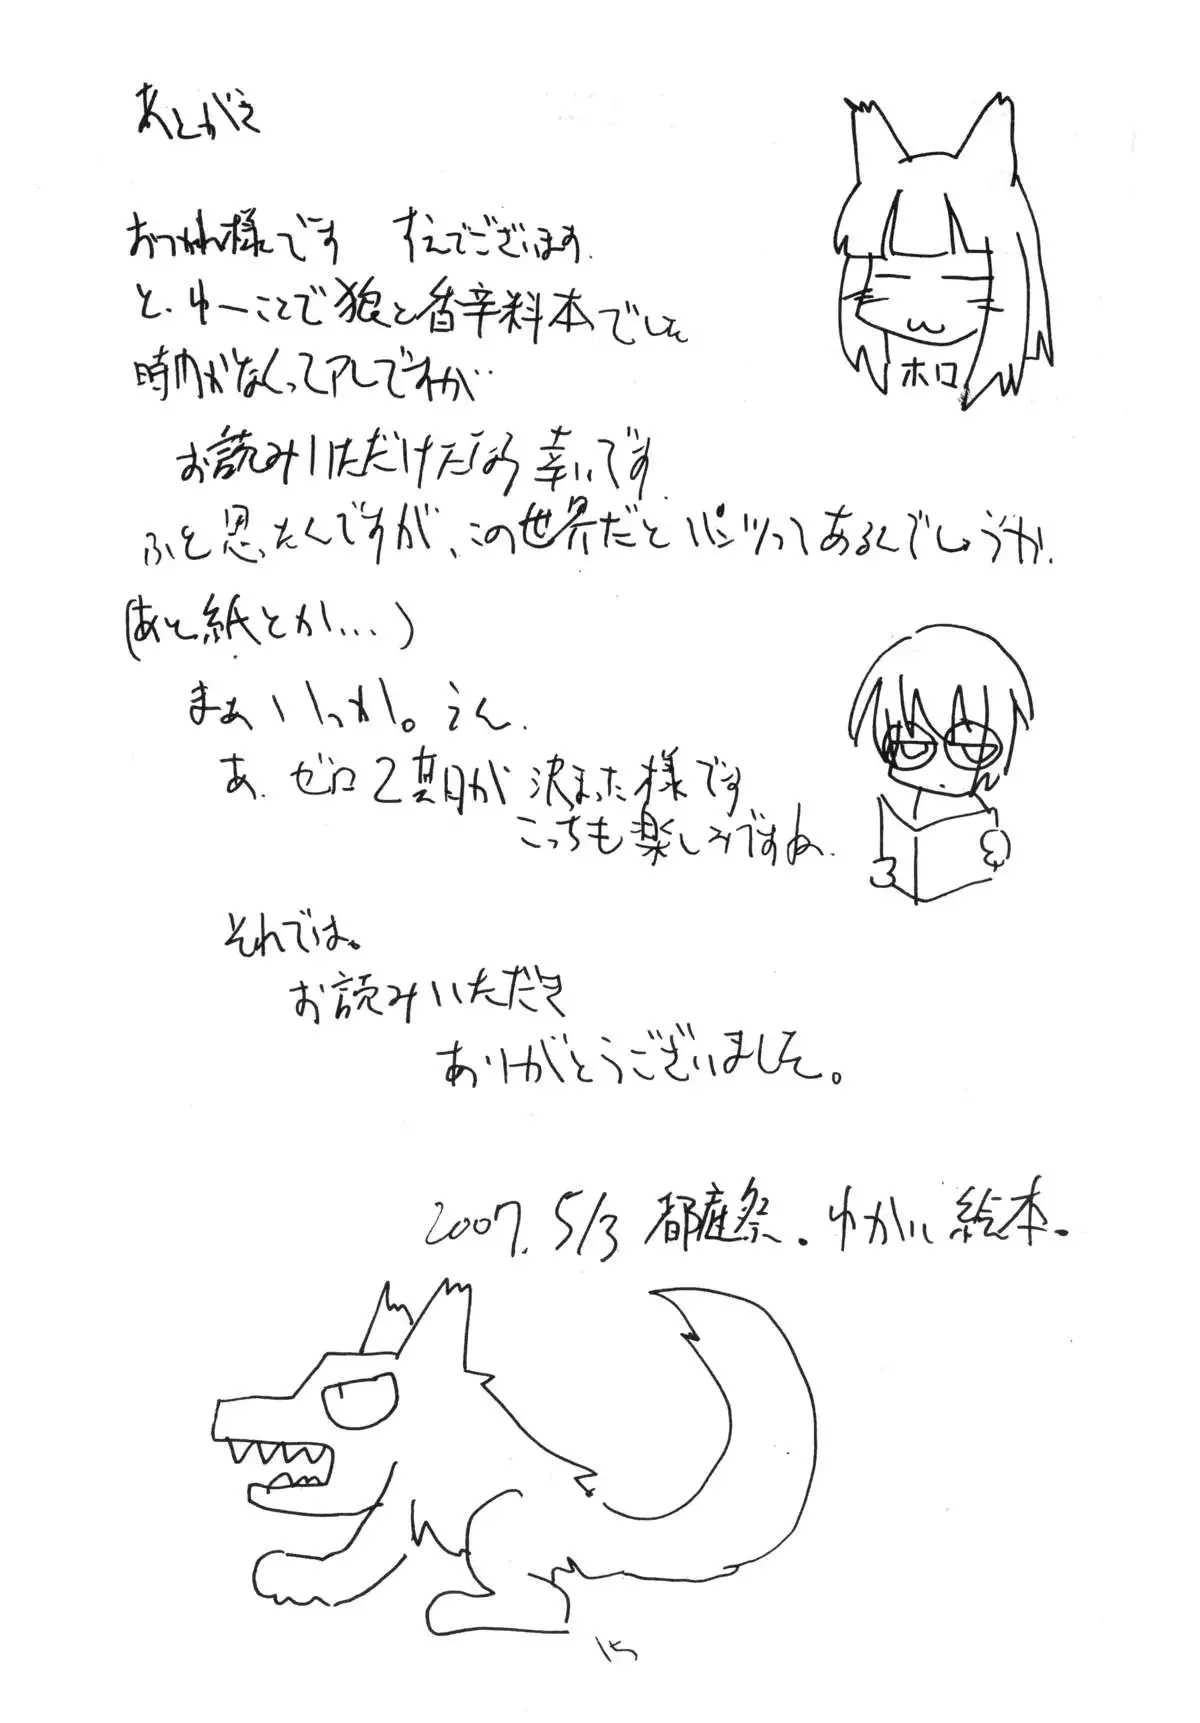 あとがき
おつかれ様です すえでございます.
と、ゆーことで狼と香辛料本でした
時間がなくってアレですわが…
お読みいただけたなら幸いです.
ふと思ったんですが、この世界だとパンツってあるんでしょうか.
(あと紙とか…)
まぁいっか。うん.
あ. ゼロ2期が決まった様です
こっちも楽しみですね.
それでは。
お読みいただき
ありがとうございました。
2007. 5/3 都産祭. ゆかいに絵本.
ホロ
15